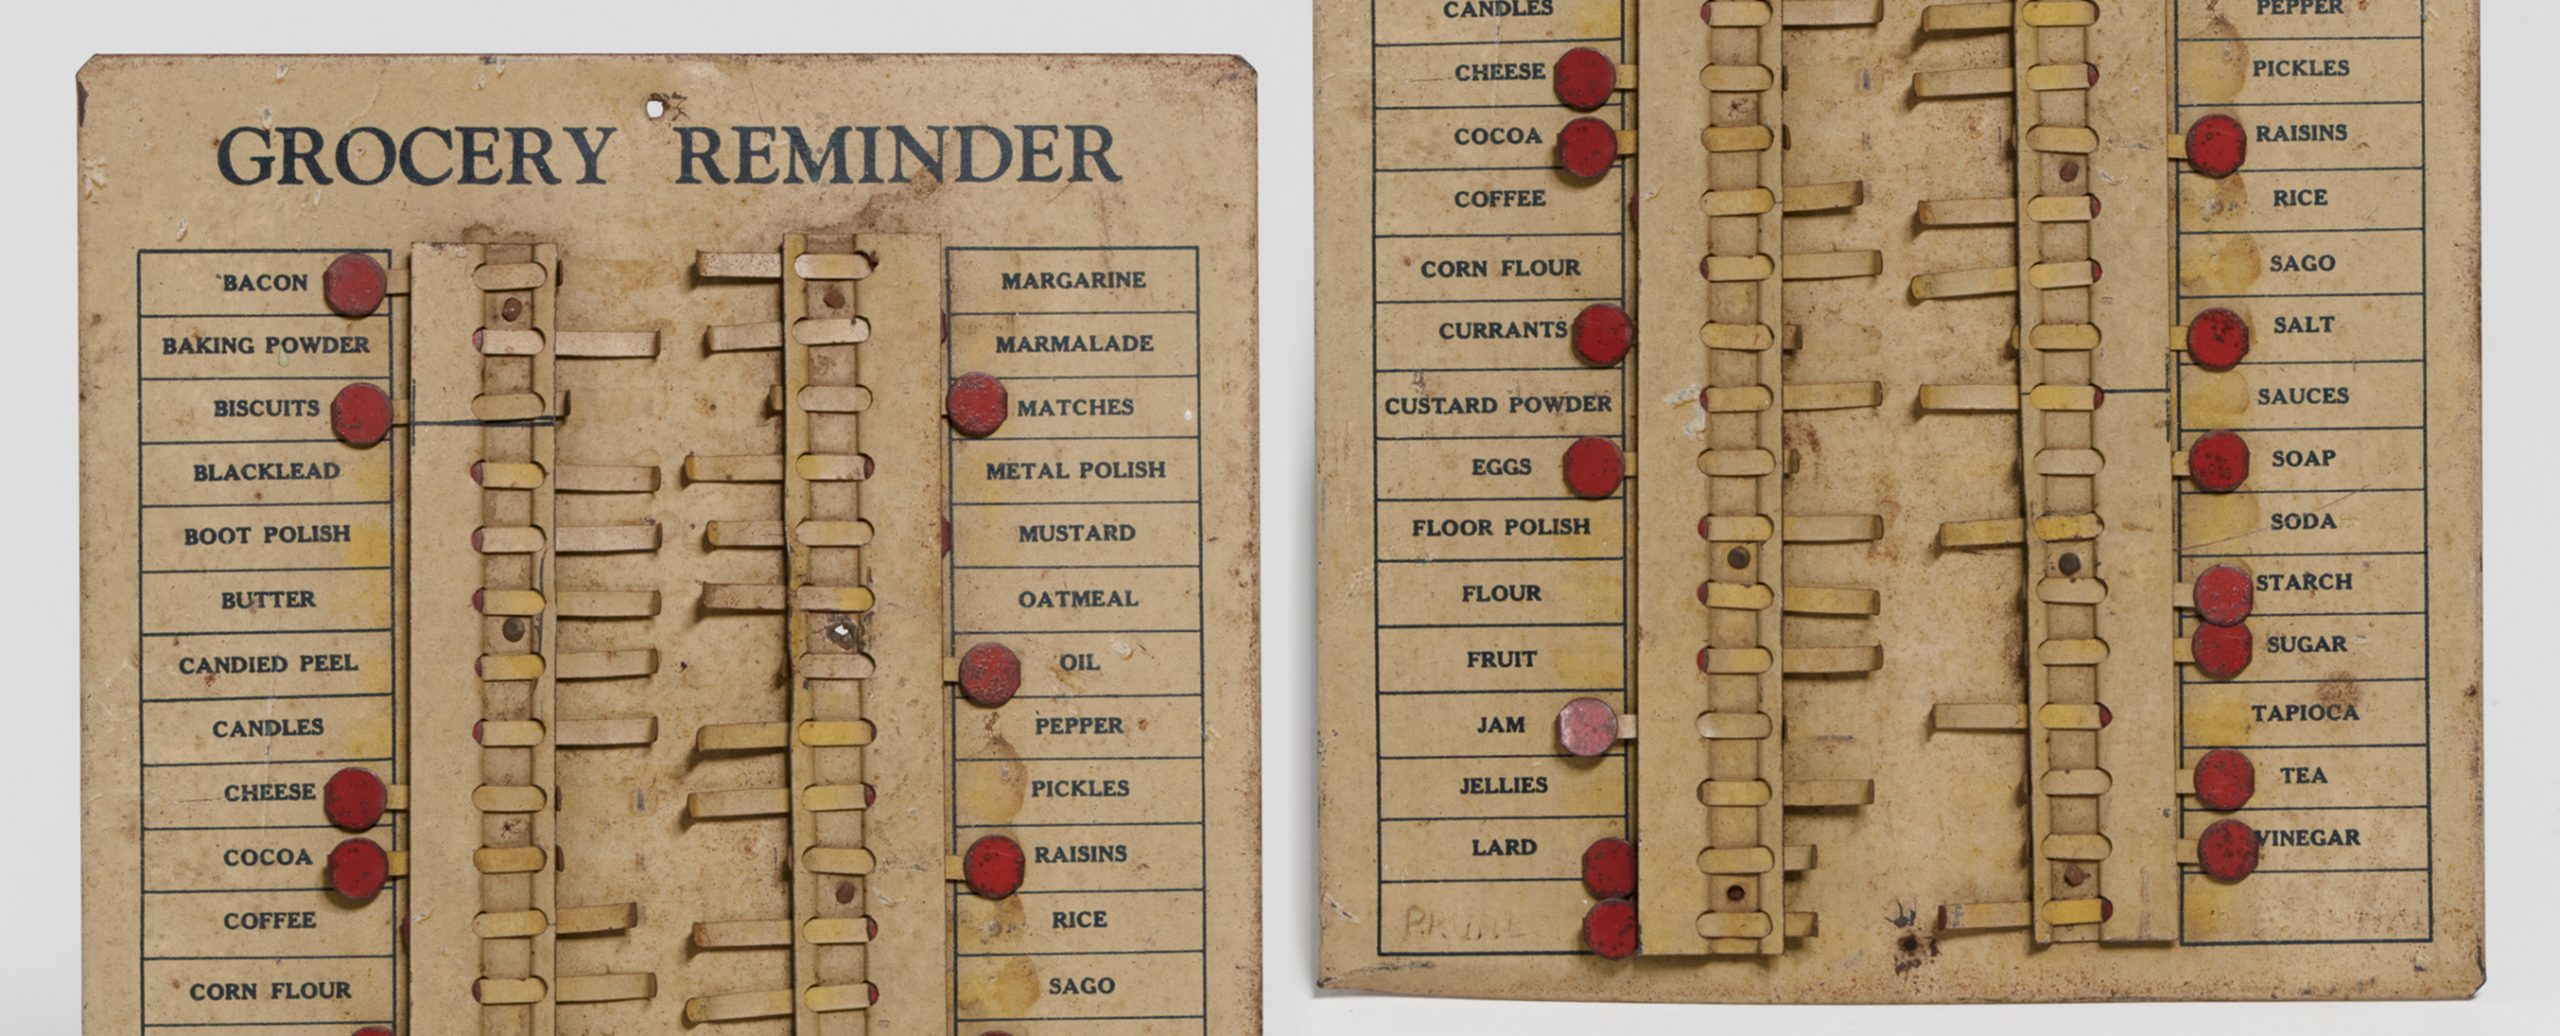 GROCERY REMINDER
BACON
BAKING POWDER
BISCUITS
BLACKLEAD
BOOT POLISH
BUTTER
CANDIED PEEL
CANDLES
CHEESE
COCOA
COFFEE
CORN FLOUR
MARGARINE
MARMALADE
MATCHES
METAL POLISH
MUSTARD
OATMEAL
OIL
PEPPER
PICKLES
RAISINS
RICE
SAGO
CANDLES
CHEESE
COCOA
COFFEE
CORN FLOUR
CURRANTS
CUSTARD POWDER
EGGS
FLOOR POLISH
FLOUR
FRUIT
JAM
JELLIES
LARD
PEPPER
PICKLES
RAISINS
RICE
SAGO
SALT
SAUCES
SOAP
SODA
STARCH
SUGAR
TAPIOCA
TEA
VINEGAR